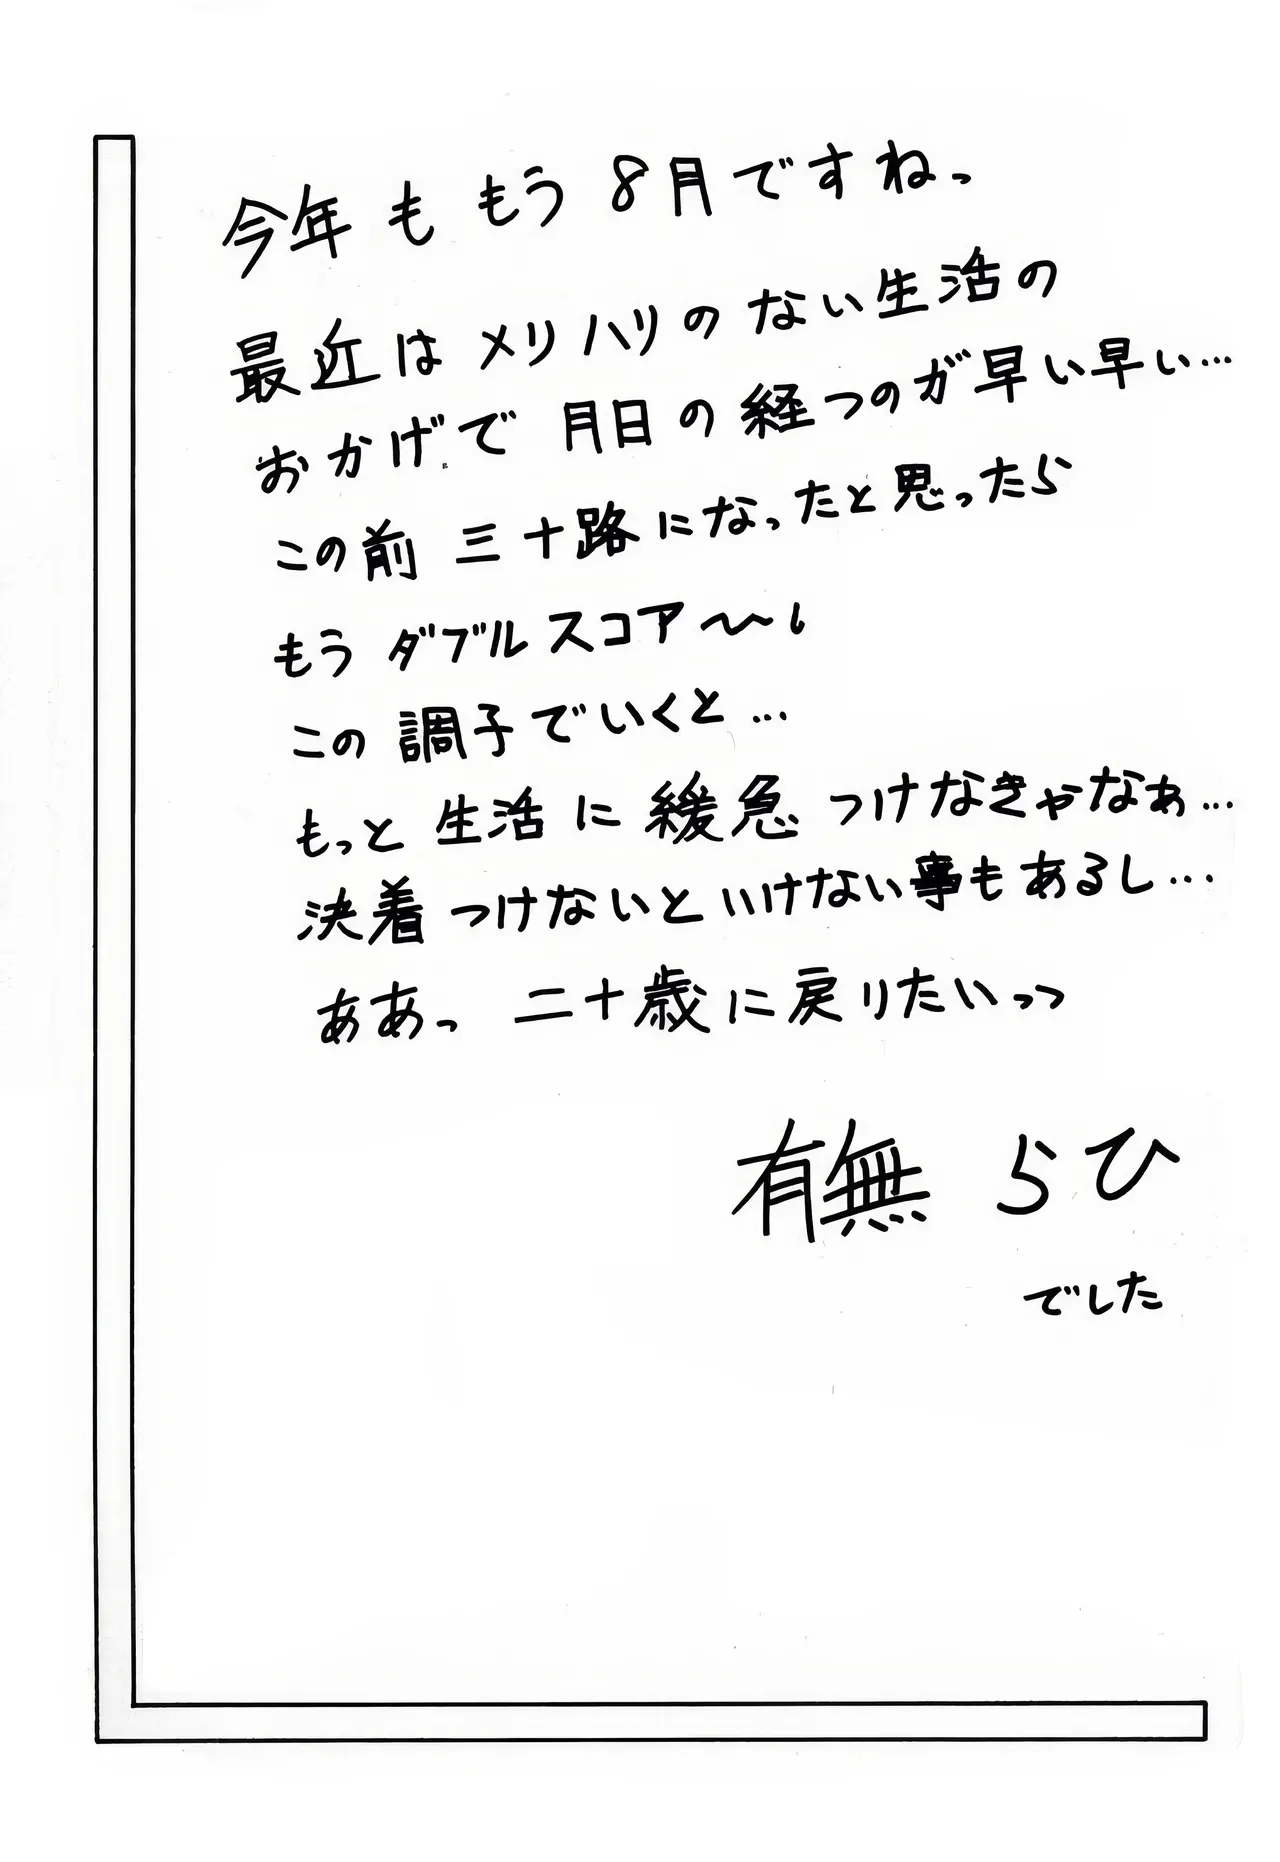 今年ももう8月ですねっ
最近はメリハリのない生活の
おかげで月日の経つのが早い早い…
この前三十路になったと思ったら
もうダブルスコア～～!
この調子でいくと…
もっと生活に緩急つけなきゃなぁ…
決着つけないといけない事もあるし…
ああっ 二十歳に戻りたいっっ
有無らひ
でした